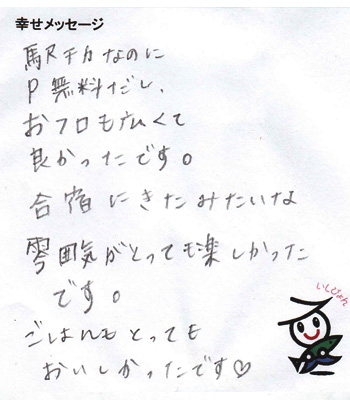 幸せメッセージ
駅チカなのに
P無料だし、
おフロも広くて
良かったです。
合宿にきたみたいな
雰囲気がとっても楽しかった
です。
ごはんもとっても
おいしかったです♡
いしぴょん